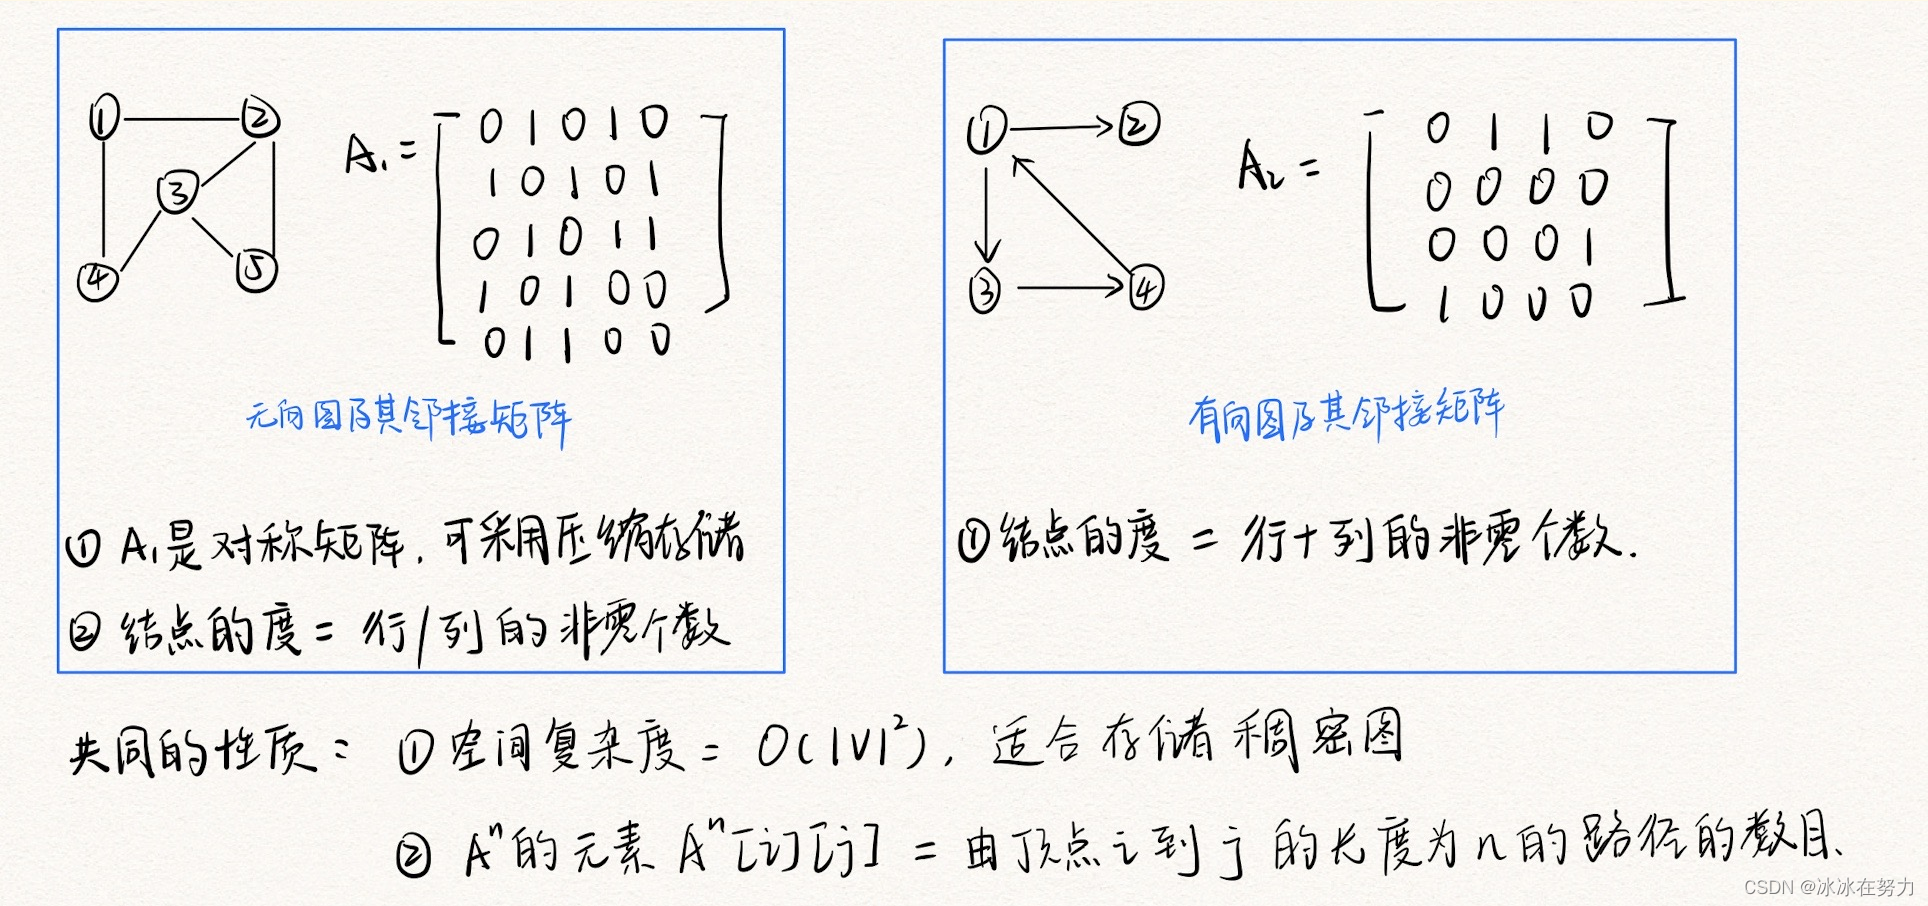 ① ② ③ ④ ⑤
A₁ =
0 1 0 1 0
1 0 1 0 1
0 1 0 1 1
1 0 1 0 0
0 1 1 0 0
无向图及其邻接矩阵
① A₁是对称矩阵，可采用压缩存储
② 结点的度 = 行/列的非零个数
① ② ③ ④
A₂ =
0 1 1 0
0 0 0 0
0 0 0 1
1 0 0 0
有向图及其邻接矩阵
① 结点的度 = 行+列的非零个数.
共同的性质： ① 空间复杂度 = O(|V|²)，适合存储稠密图
② Aⁿ的元素 Aⁿ[i][j] = 由顶点i到j的长度为n的路径的数目.
CSDN @冰冰在努力